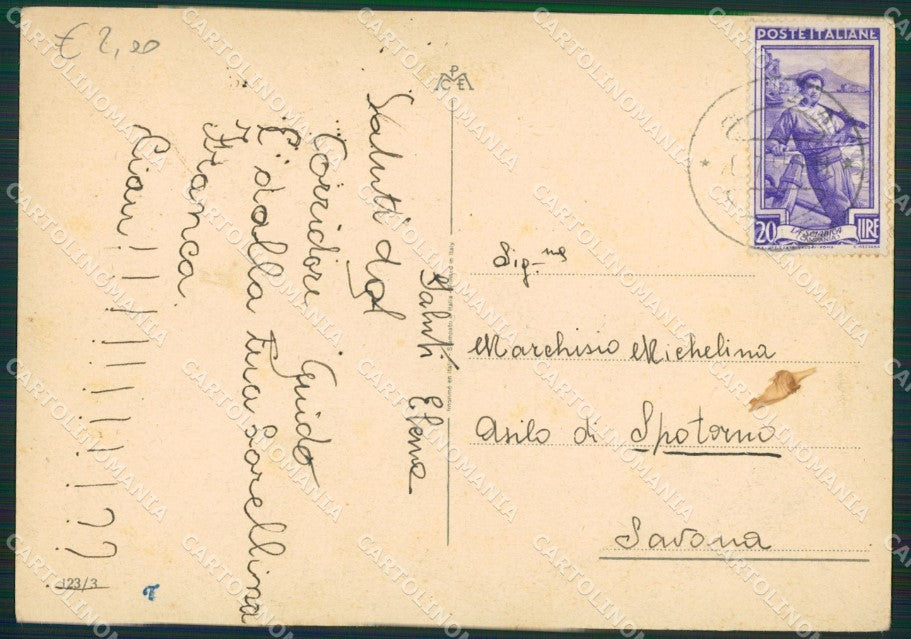 € 2,00
Saluti dal
Corridore Guido
E dalla tua Sorellina
Franca.
Ciau!!!!!!!??
Saluti Elena
123/3
POSTE ITALIANE
20 LIRE
Sig.na
Marchisio Michelina
Asilo di Spotorno
Savona
CARTOLINOMANIA